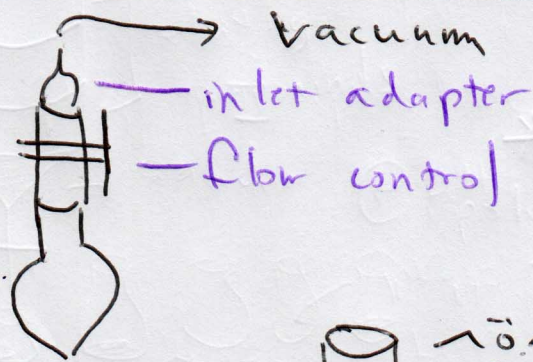 vacuum
inlet adapter
flow control